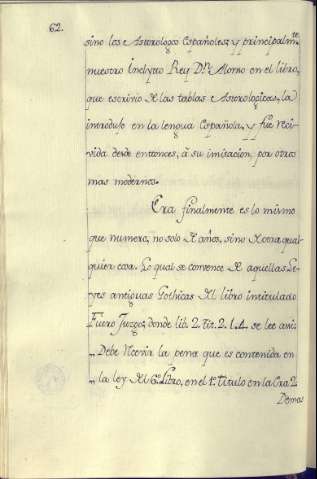 62.
sino los Astrologos Españoles, y principalm.te
nuestro Inclyto Rey D.n Alonso en el libro,
que escrivio de las tablas Astrologicas, la
introdujo en la lengua Española, y fue reci-
vida desde entonces, à su imitacion por otros
mas modernos.
Era finalmente es lo mismo
que numero, no solo de años, sino de otra qual
quier cosa. Lo qual se convence de aquellas Le-
yes antiguas Gothicas del libro intitulado
Fuero Juzgo, donde lib. 2. tit. 2. l. 4. se lee assi:
„ Debe recevir la pena que es contenida en
„ la ley del 6.º Libro, en el 1.º titulo en la Era 2.
Demas